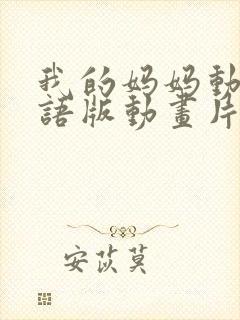 我的妈妈動
語版動畫片
安苡莫